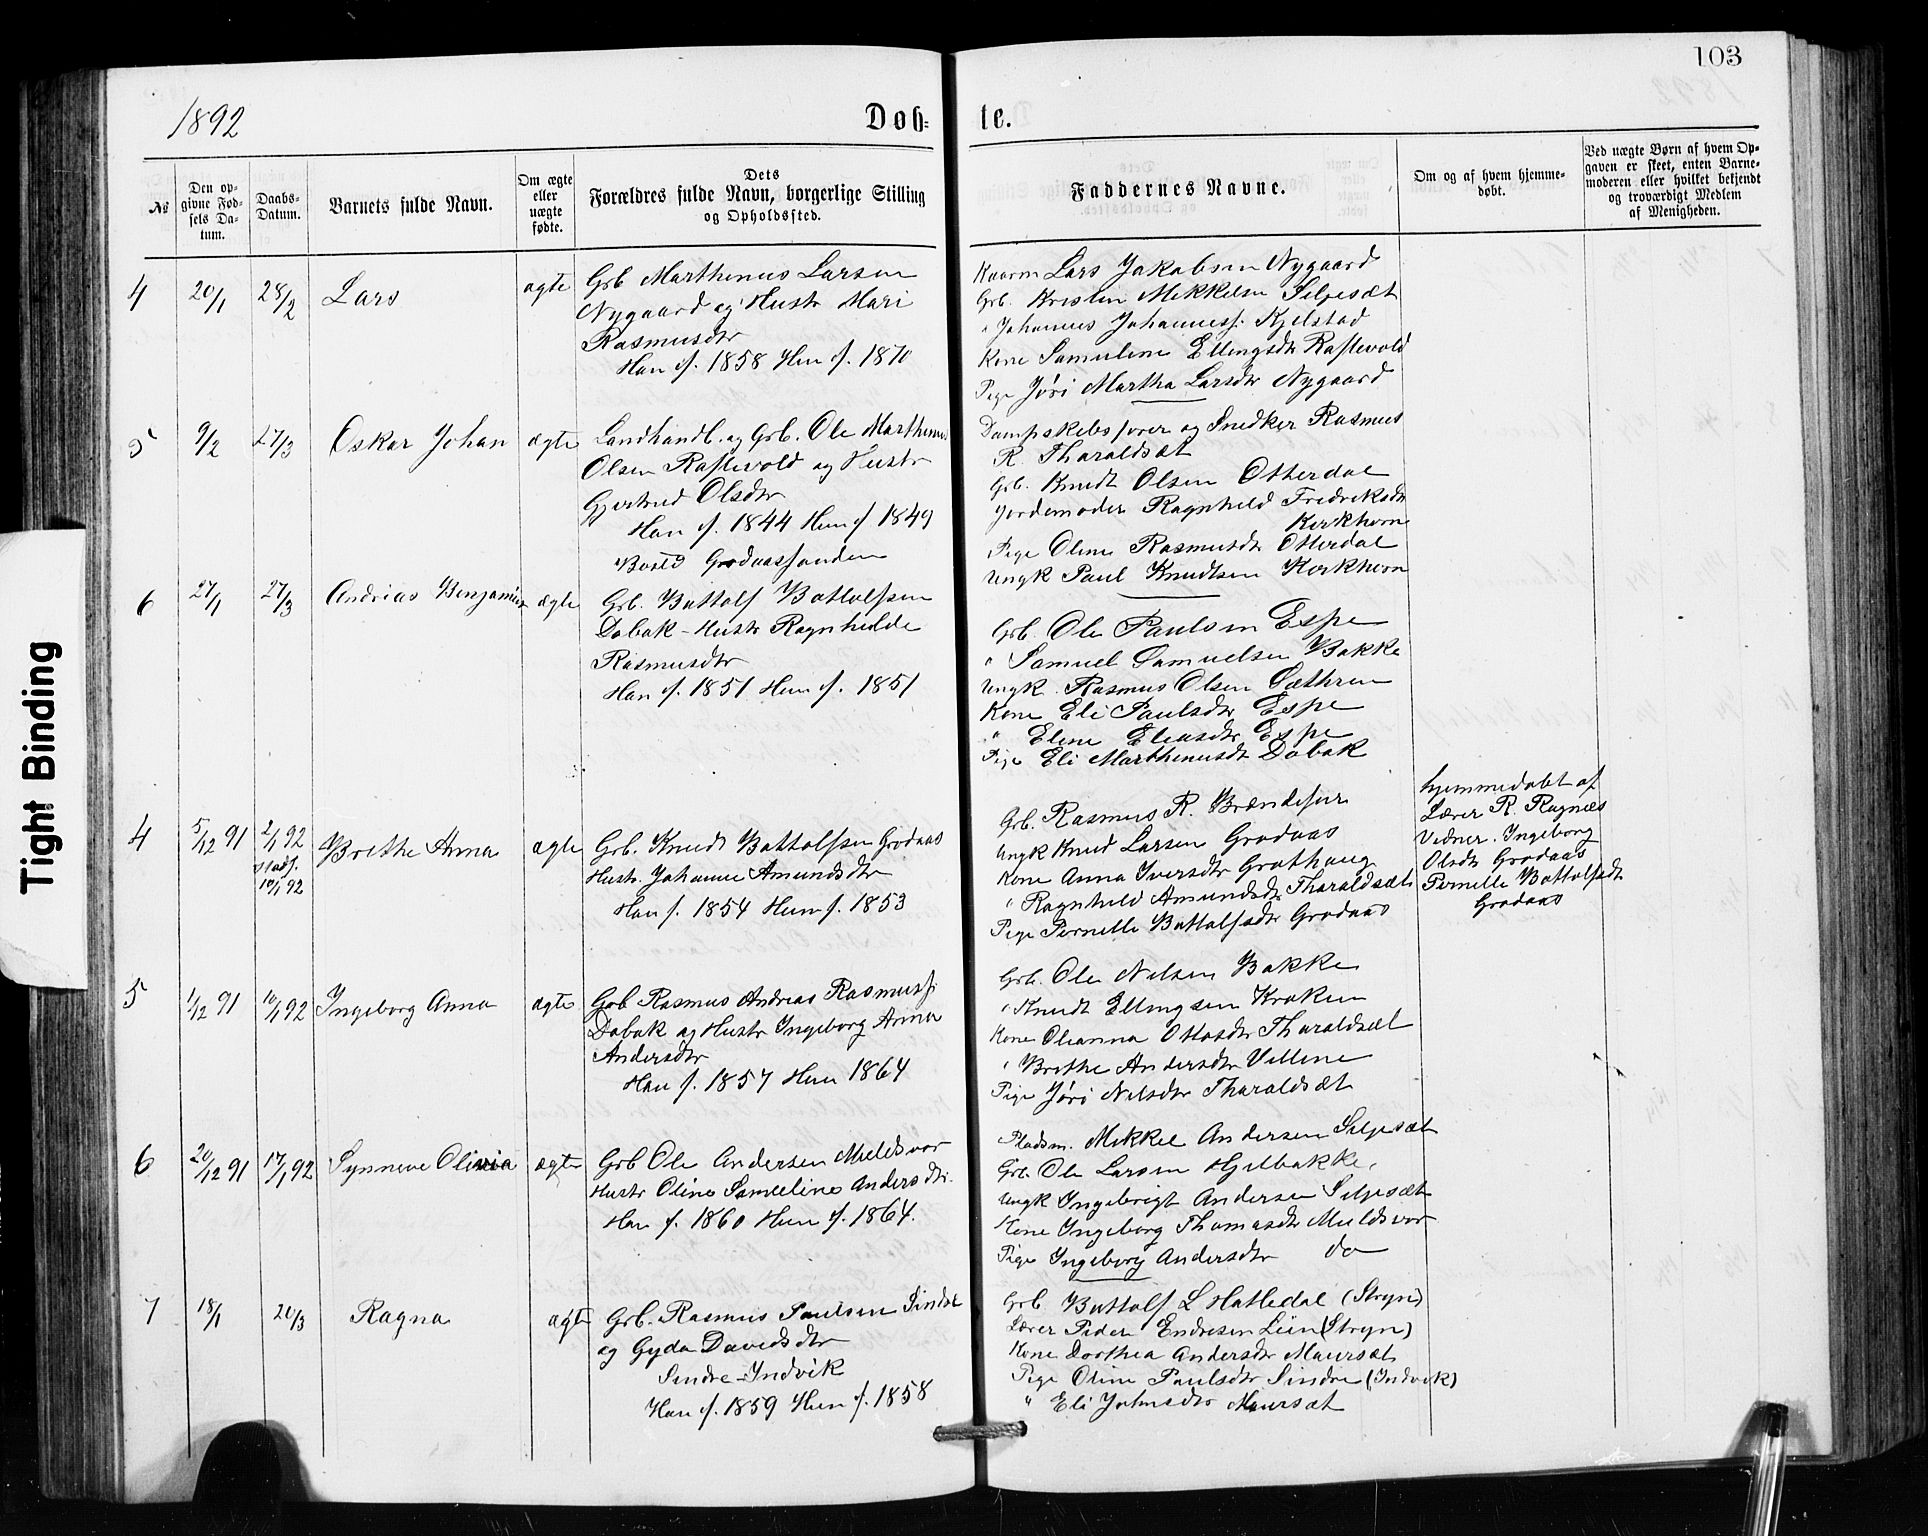 103
1892
Døb=
te.
№
Den op-
givne Fød-
sels Da-
tum.
Daabs-
Datum.
Barnets fulde Navn.
Om ægte
eller
uægte
fødte.
Dets
Forældres fulde Navn, borgerlige Stilling
og Opholdssted.
Faddernes Navne.
Om og af hvem hjemme-
døbt.
Ved uægte Børn af hvem Op-
gaven er skeet, enten Barne-
moderen eller hvilket bekjendt
og troværdigt Medlem
af Menigheden.
4 20/1 28/2 Lars ægte
Grb Marthinus Larsen
Nygaard og Hustr Mari
Rasmusdtr
Han f. 1858 Hun f. 1870
Kaarm Lars Jakobsen Nygaard
Grb. Kristen Mikkelsen Siljesæt
" Johannes Johanness. Kjelstad
Kone Samuline Ellingsdtr Raftevold
Pige Jøri Martha Larsdtr Nygaard
5 9/2 27/3 Oskar Johan ægte
Landhandl. og Grb. Ole Marthinus
Olsen Raftevold og Hustr
Gjertrud Olsdtr
Han f. 1844 Hun f 1849
Bosid Grodaassanden
Dampskibsfører og Snedker Rasmus
R. Tharaldsæt
Grb. Knudt Olsen Otterdal
Jordemoder Ragnhild Fredriksdtr
Kirkhorn
Pige Oline Rasmusdtr Otterdal
Ungk Paul Knudtsen Kirkhorn
6 27/1 27/3 Andrias Benjamin ægte
Grb. Bottolf Bottolfsen
Dobak - Hustr Ragnhilde
Rasmusdtr
Han f. 1851 Hun f. 1851
Grb. Ole Paulsen Espe
" Samuel Samuelsen Bakke
Ungk. Rasmus Olsen Sæthren
Kone Eli Paulsdtr Espe
" Eline Eliasdtr Espe
Pige Eli Marthinusdt Dobak
4 5/12 91 2/1 92
stadf.
10/1 92
Brithe Anna ægte
Grb. Knudt Bottolfsen Grodaas
Hustr. Johanne Amundsdtr
Han f. 1854 Hun f. 1853
Grb. Rasmus R. Brændefur
Ungk Knud Larsen Grodaas
Kone Anna Iversdtr Grothaug
" Ragnhild Amundsdtr Tharaldsæt
Pige Pernille Bottolfsdtr Grodaas
hjemmedøbt af
Lærer R. Ragnæs
Vidner. Ingeborg
Olsdtr Grodaas
Pernille Bottolfsdtr
Grodaas
5 1/12 91 10/1 92 Ingeborg Anna ægte
Grb Rasmus Andreas Rasmuss.
Dobak og Hustr Ingeborg Anna
Andersdtr
Han f. 1857 Hun 1864
Grb. Ole Nilsen Bakke
" Knudt Ellingsen Kroken
Kone Olianna Ottosdtr Tharaldsæt
" Brithe Andersdtr Villene
Pige Jøri Nilsdtr Tharaldsæt
6 20/12 91 17/1 92 Synneve Olivia ægte
Grb Ole Andersen Muldsvor
Hustr Oline Samueline Andersdtr.
Han f. 1860 Hun f. 1864.
Pladsm. Mikkel Andersen Siljesæt
Grb. Ole Larsen Hjelbakke,
Ungk Ingebrigt Andersen Siljesæt
Kone Ingeborg Thomasdtr Muldsvor
Pige Ingeborg Andersdtr do
7 18/1 20/3 Ragna ægte
Grb. Rasmus Paulsen Sindre
og Gyda Davidsdtr
Sindre - Indvik
Han f. 1859 Hun f. 1858
Grb Bottolf L Hatledal (Stryn)
Lærer Peder Endresen Lien (Stryn)
Kone Dorthea Andersdtr Maursæt
Pige Oline Paulsdtr Sindre (Indvik)
" Eli Johnsdtr Maursæt
Tight Binding